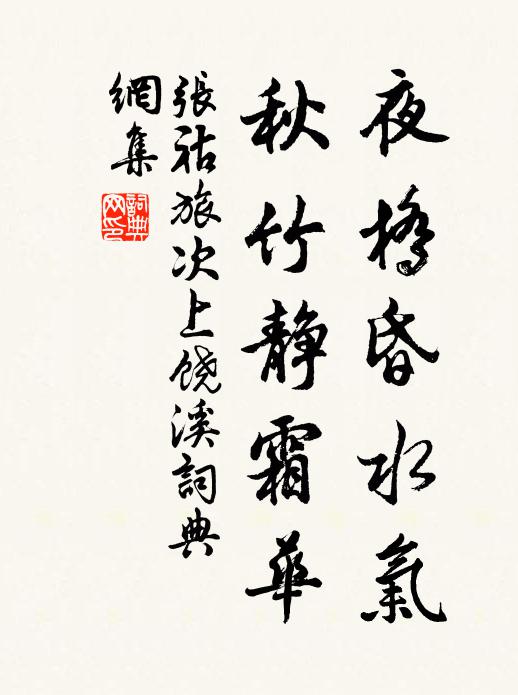 夜橋昏水氣
秋竹靜霜華
張祜旅次上饒溪詞典
網集
詞典
网印